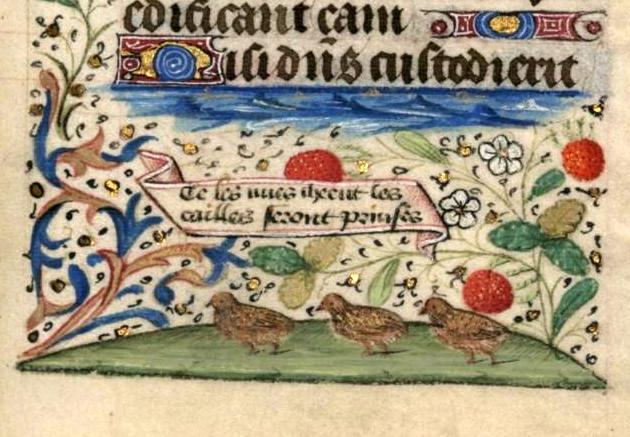 edificant eam
Nisi dñs custodierit
Se les nues cheent les
cailles seront prinses